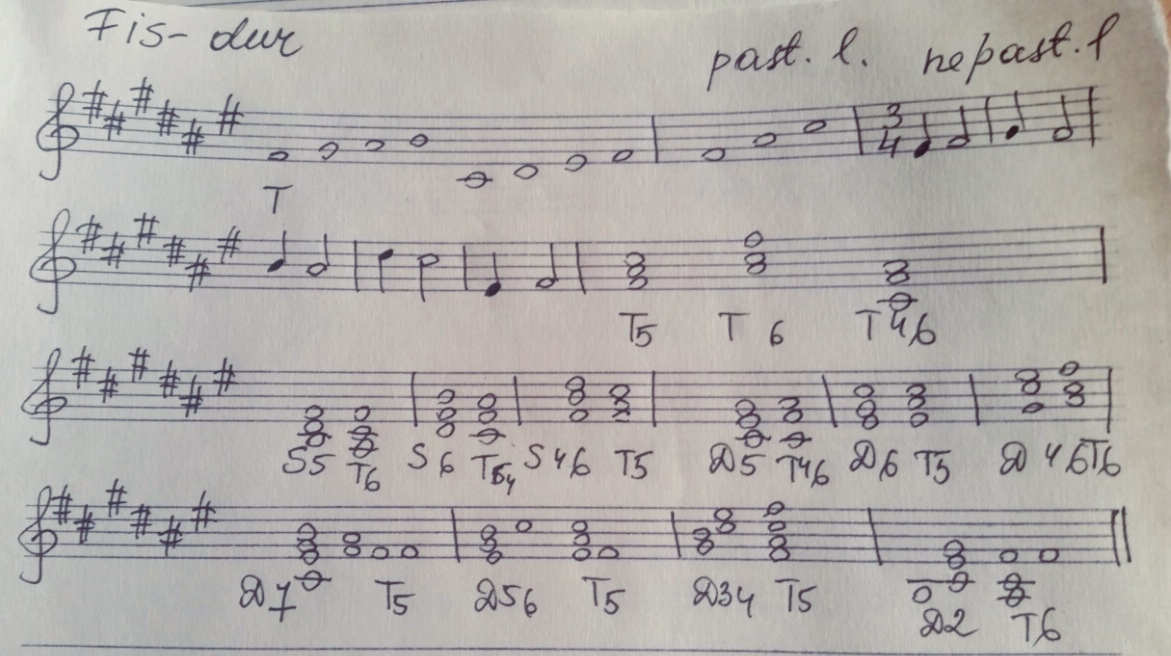 Fis-dur
past. l. nepast. l
3
4
T
T5 T 6 T46
S5 T6 S6 T64 S46 T5 D5 T46 D6 T5 D 46 T6
D7 T5 D56 T5 D34 T5
D2 T6